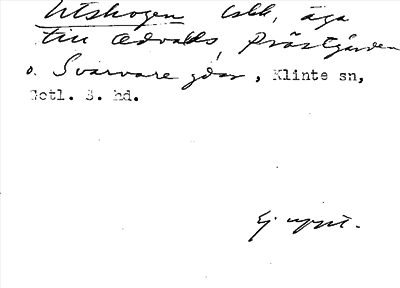 Utskogen lskk, äga
till Odvalds, Prästgården
o. Svarvare gdar, Klinte sn,
Gotl. S. hd.
Ej uppt.